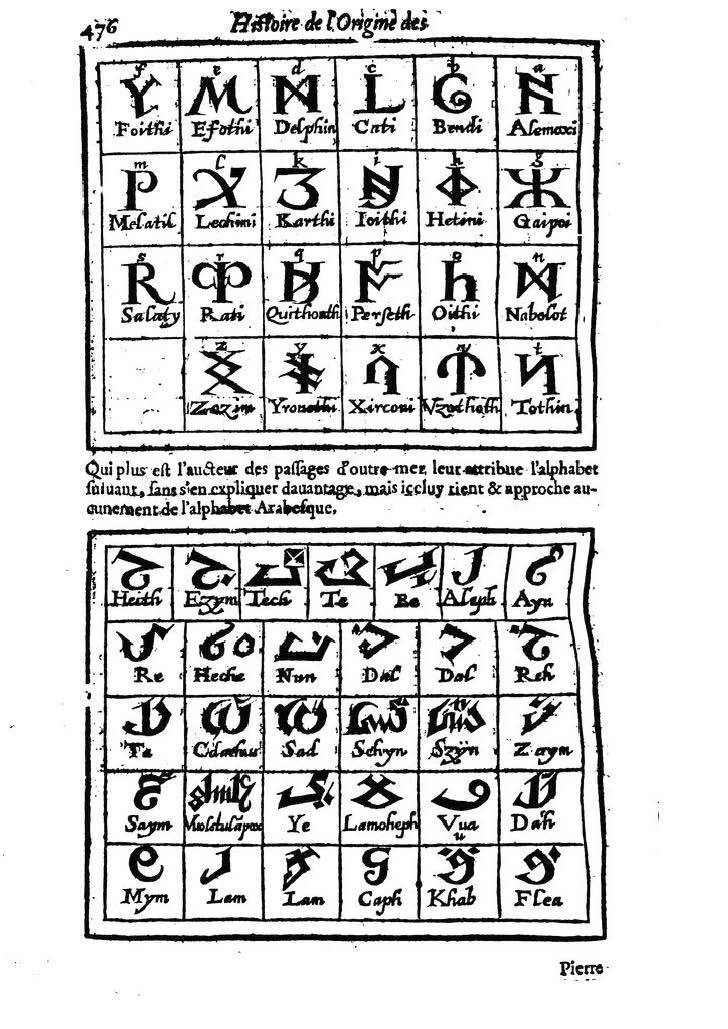 476 Histoire de l'Origine des
f e d c b a
Foithi Efothi Delphin Cati Bendi Alemoxi
m l k i h g
Melatil Lechimi Karthi Ioithi Hetini Gaipoi
s r q p o n
Salaty Rati Quithoath Perseth Oithi Nabolot
z y x v t
Zazim Yronethi Xirconi Vzathoth Tothin
Qui plus est l'aucteur des passages d'outre-mer, leur attribue l'alphabet
suiuant, sans s'en expliquer dauantage, mais iceluy tient & approche au-
cunement de l'alphabet Arabesque.
Heith Ezym Tech Te Be Aleph Ayn
Re Heche Nun Dal Dal Reh
Ta Sad Schyn Szyn Zaym
Saym Ye Lamoheph Vua Dah
Mym Lam Lam Caph Khab Flea
Pierre